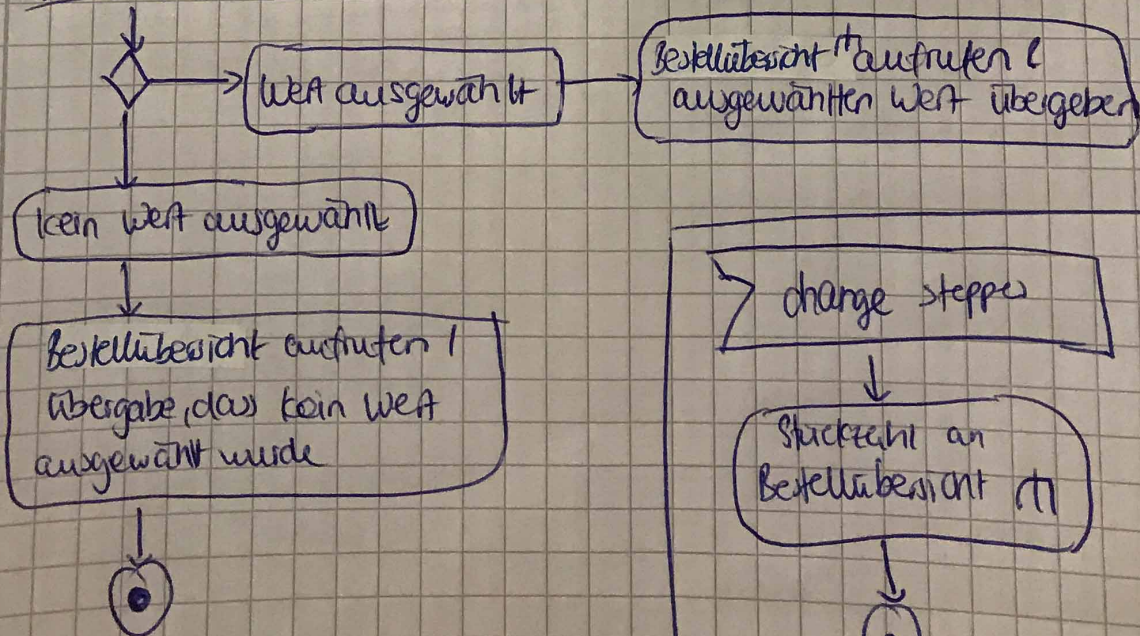 Wert ausgewählt
Bestellübersicht aufrufen /
ausgewählten Wert übergeben
kein Wert ausgewählt
Bestellübersicht aufrufen /
übergabe, dass kein Wert
ausgewählt wurde
change stepper
Stückzahl an
Bestellübersicht